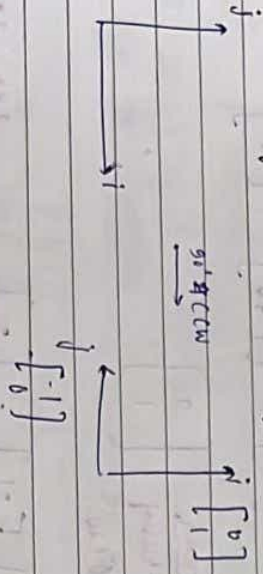 j
i
90° CCW
i
[0
1]
j
[-1
0]